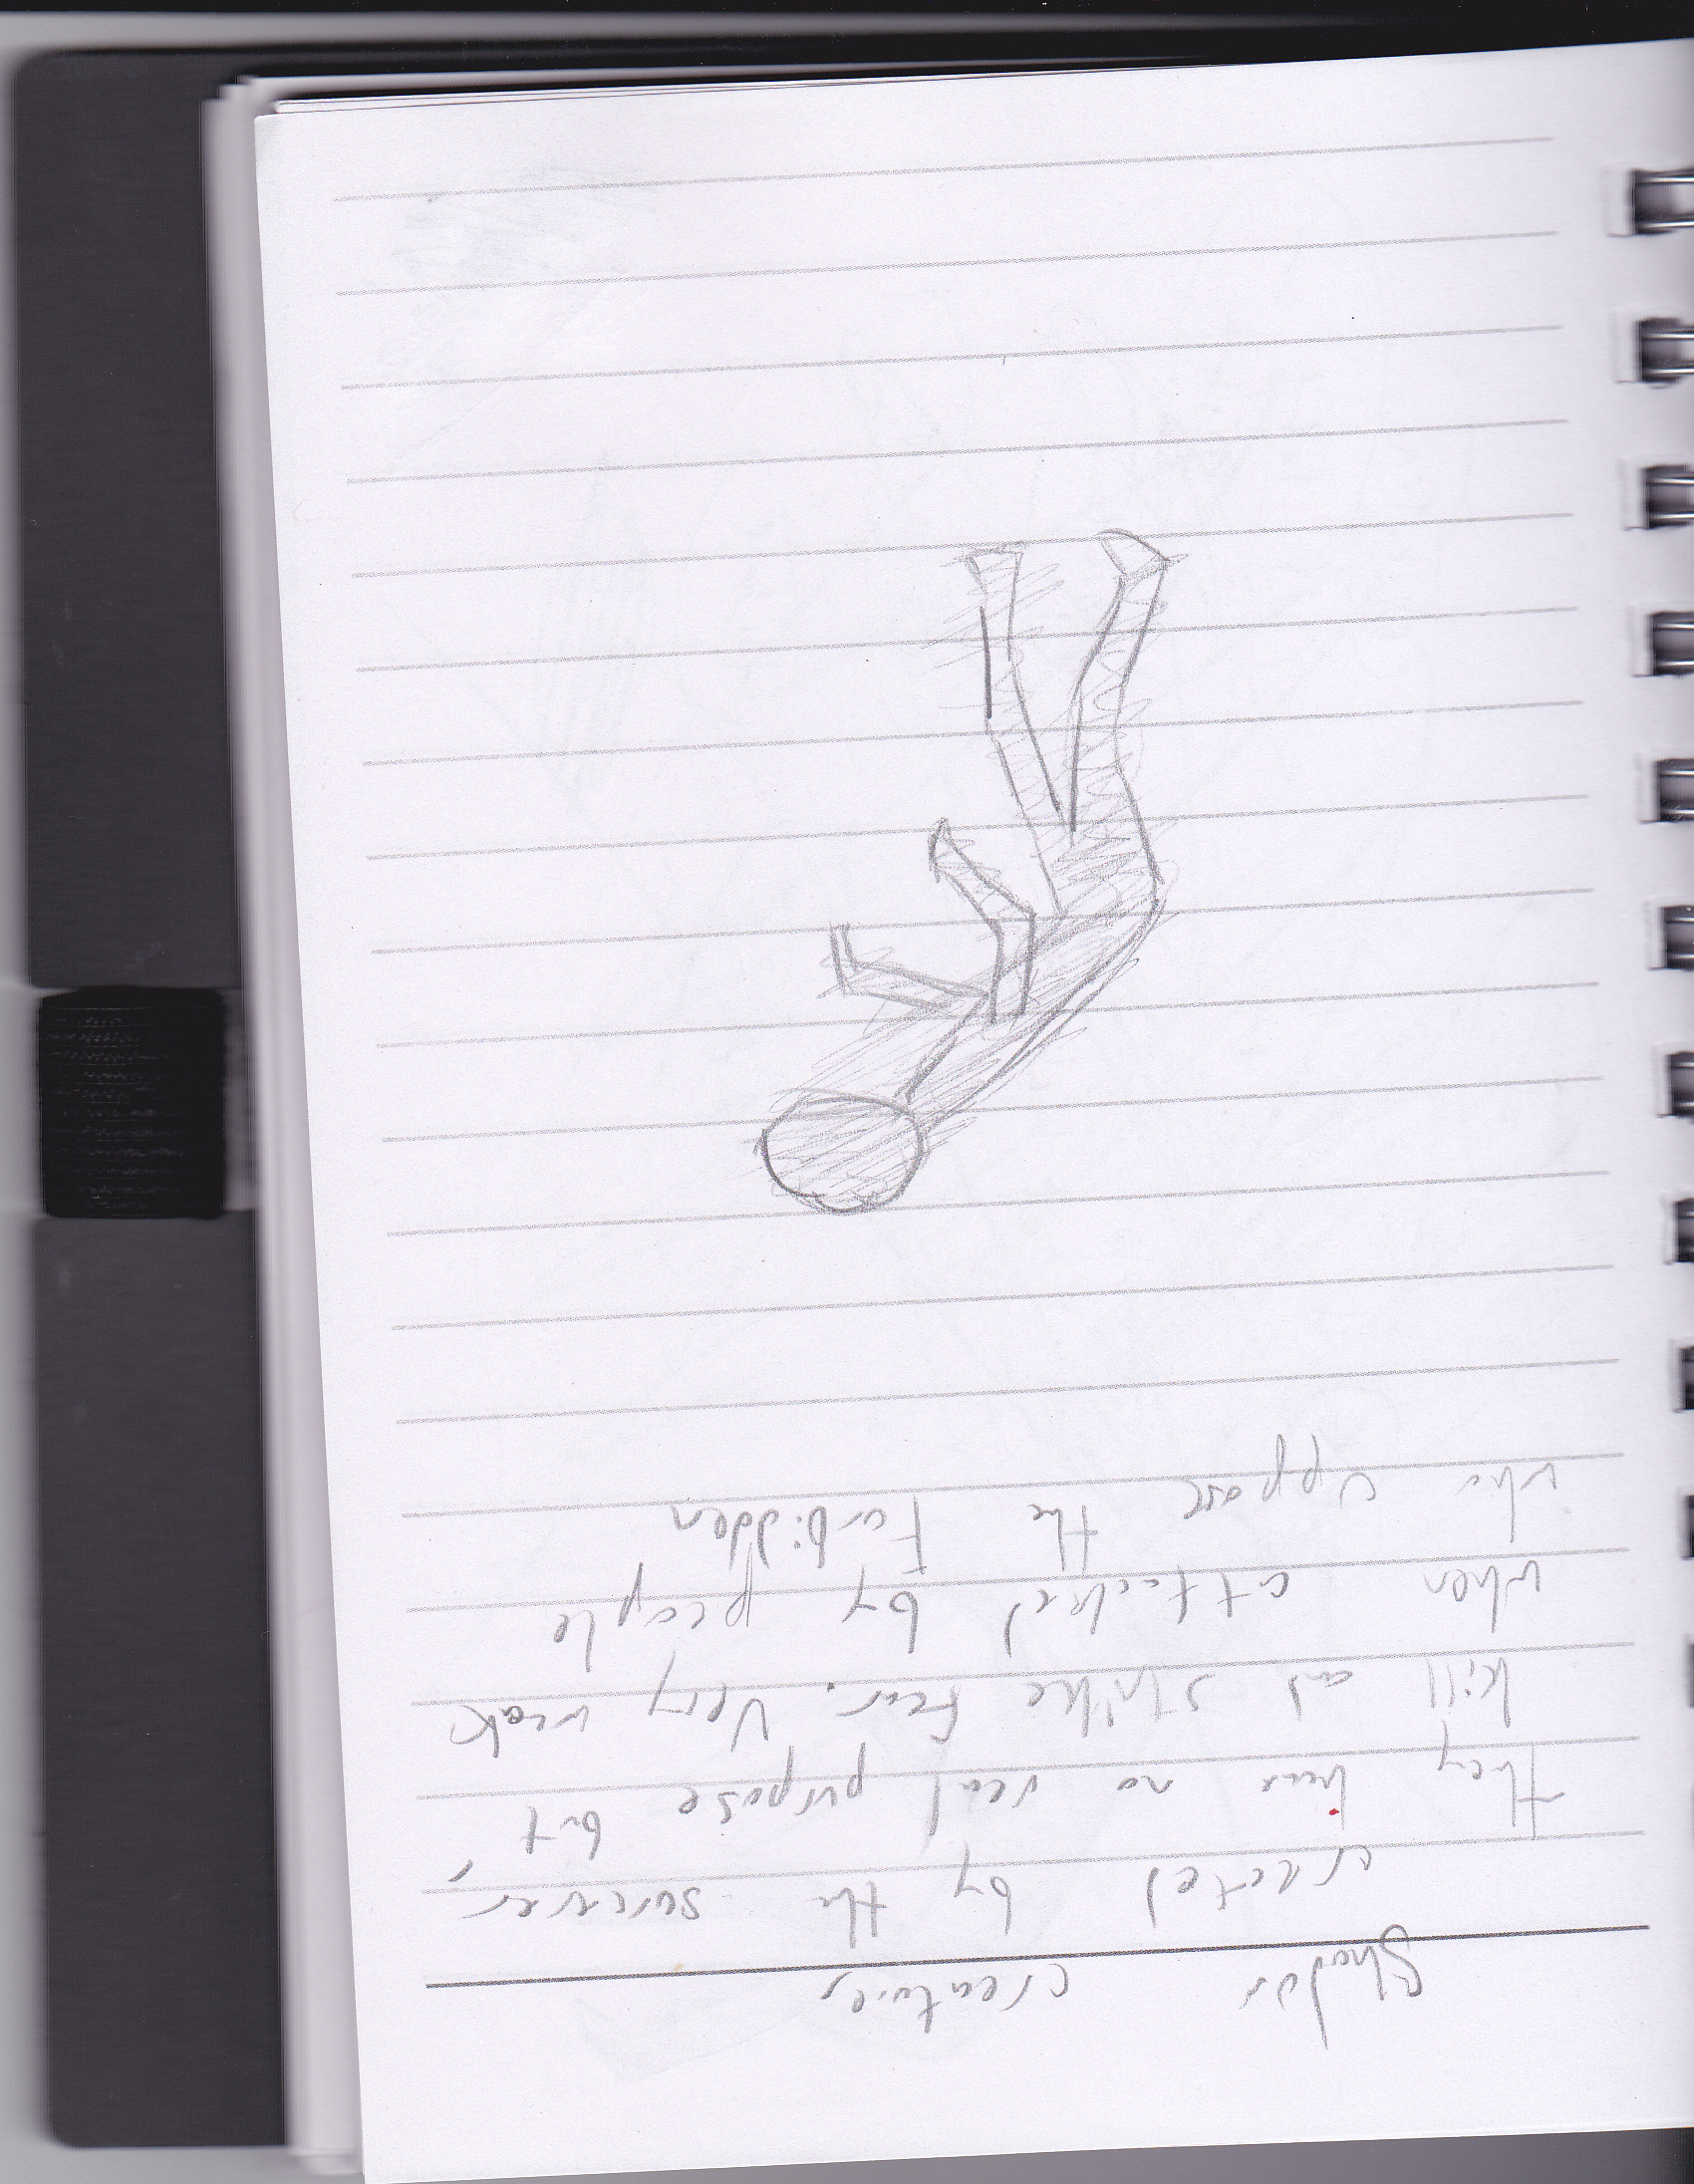 Shadow creatures
created by the sorcerer,
they have no real purpose but
kill and strike fear. Very weak
when attacked by people
who oppose the Forbidden